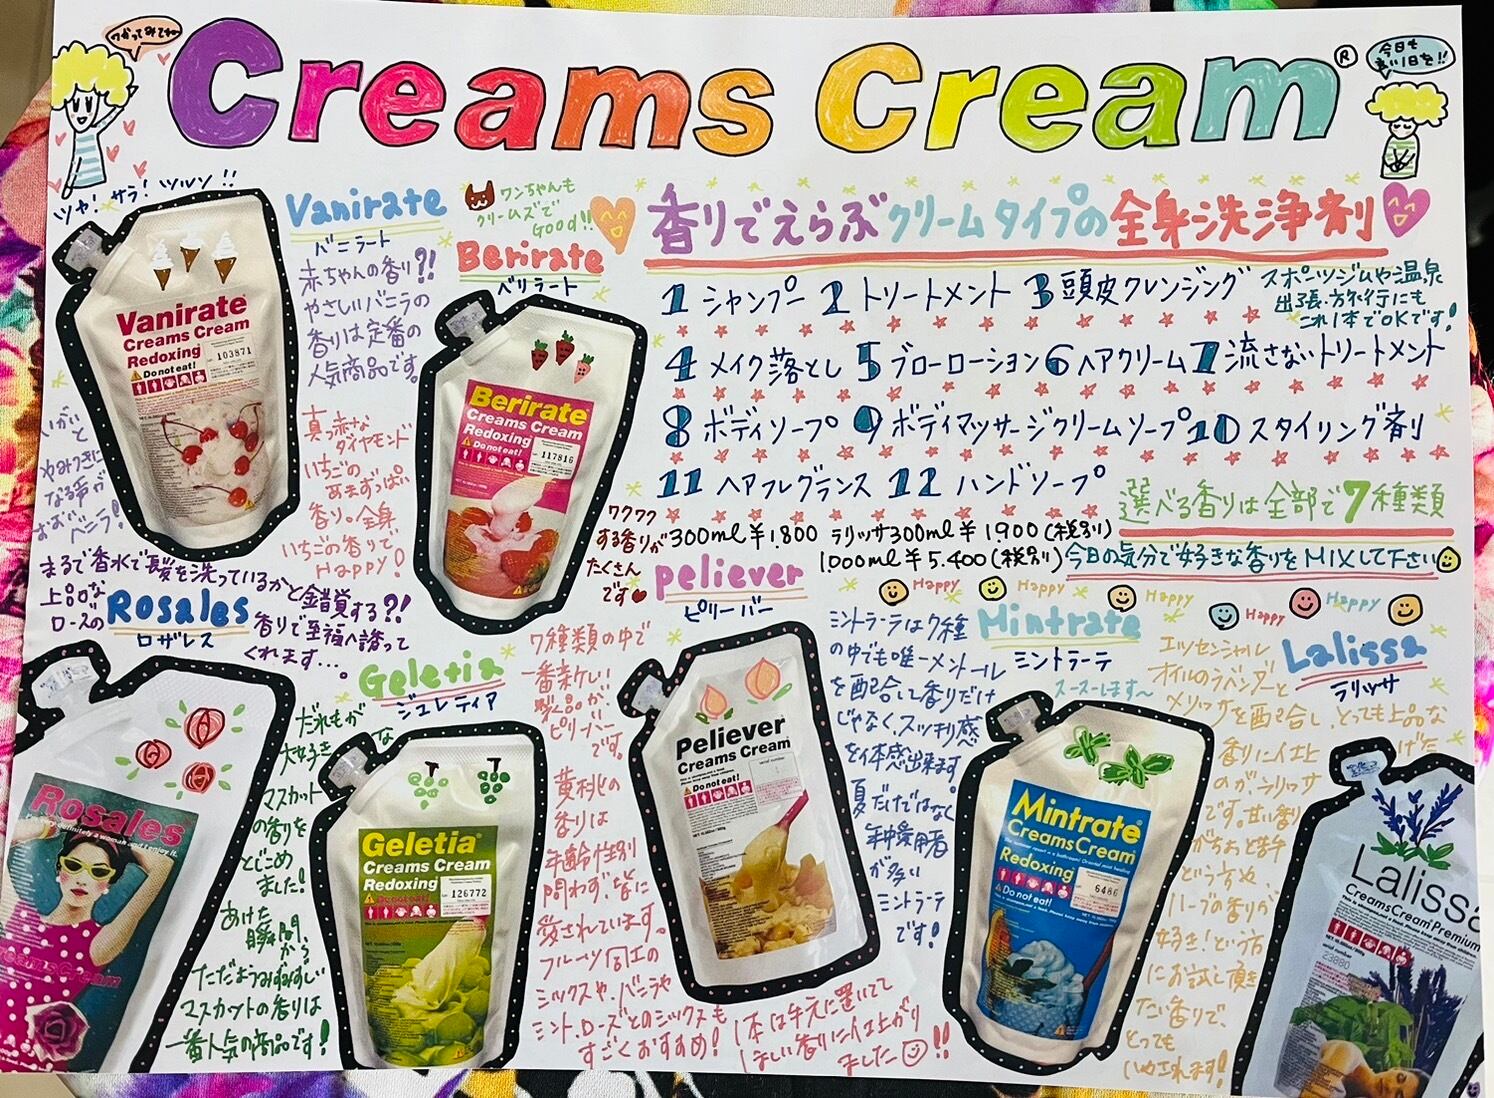 つかってみてね
Creams Cream®
今日も
良い1日を!!
ツヤ!サラ!ツルツ!!
Vanirate
バニラート
赤ちゃんの香り?!
やさしいバニラの
香りは定番の
人気商品です。
ワンちゃんも
クリームズで
GOOD!!
Berirate
ベリラート
真っ赤な
ダイヤモンド
いちごの
あまずっぱい
香り。全身
いちごの香りで
Happy!
香りでえらぶクリームタイプの全身洗浄剤
1 シャンプー 2 トリートメント 3 頭皮クレンジング
スポーツジムや温泉
出張・旅行にも
これ1本でOKです!
4 メイク落とし 5 ブローローション 6 ヘアクリーム 7 流さないトリートメント
8 ボディソープ 9 ボディマッサージクリームソープ 10 スタイリング剤
11 ヘアフレグランス 12 ハンドソープ
選べる香りは全部で7種類
300ml ¥1.800 ラリッサ300ml ¥1900(税別)
1.000ml ¥5.400(税別)
今日の気分で好きな香りをMIXして下さい
ワクワク
する香りが
たくさん
です
Happy Happy Happy Happy
Vanirate
Creams Cream
Redoxing
103871
Do not eat!
Berirate
Creams Cream
Redoxing
Do not eat!
117816
まるで香水で髪を洗っているかと錯覚する?!
上品な
ローズの
Rosales
ロザレス
香りで至福へ誘って
くれます…。
Rosales
Creams Cream
Geletia
ジュレティア
だれもが
大好きな
マスカット
の香りを
とじこめ
ました!
あけた
瞬間、から
ただようみずみずしい
マスカットの香りは
一番人気の商品です!
Geletia
Creams Cream
Redoxing
Do not eat!
126772
peliever
ピリーバー
7種類の中で
一番新しい
製品が、
ピリーバー
です。
黄桃の
香りは
年齢性別
問わず、皆に
愛されています。
フルーツ同士の
ミックスや、バニラや
ミント、ローズとのミックスも
すごくおすすめ!
1本は手元に置いて
ほしい香りに仕上がり
ました!!
Peliever
Creams Cream
Do not eat!
Mintrate
ミントラーテ
スースーします〜
ミントラーテは7種
の中でも唯一メントール
を配合して香りだけ
じゃなく、スッキリ感
を体感出来ます。
夏だけではなく
年中愛用者
が多い
ミントラーテ
です!
Mintrate
Creams Cream
Redoxing
Do not eat!
6486
Lalissa
ラリッサ
エッセンシャル
オイルのラベンダーと
メリッサを配合し、とっても上品な
香りに仕上げた
のが、ラリッサ
です。甘い香り
がちょっと苦手
という方や、
ハーブの香りが
好き!という方
にお試し頂き
たい香りで、
とっても
いやされます!
Lalissa
Creams Cream Premium
23880